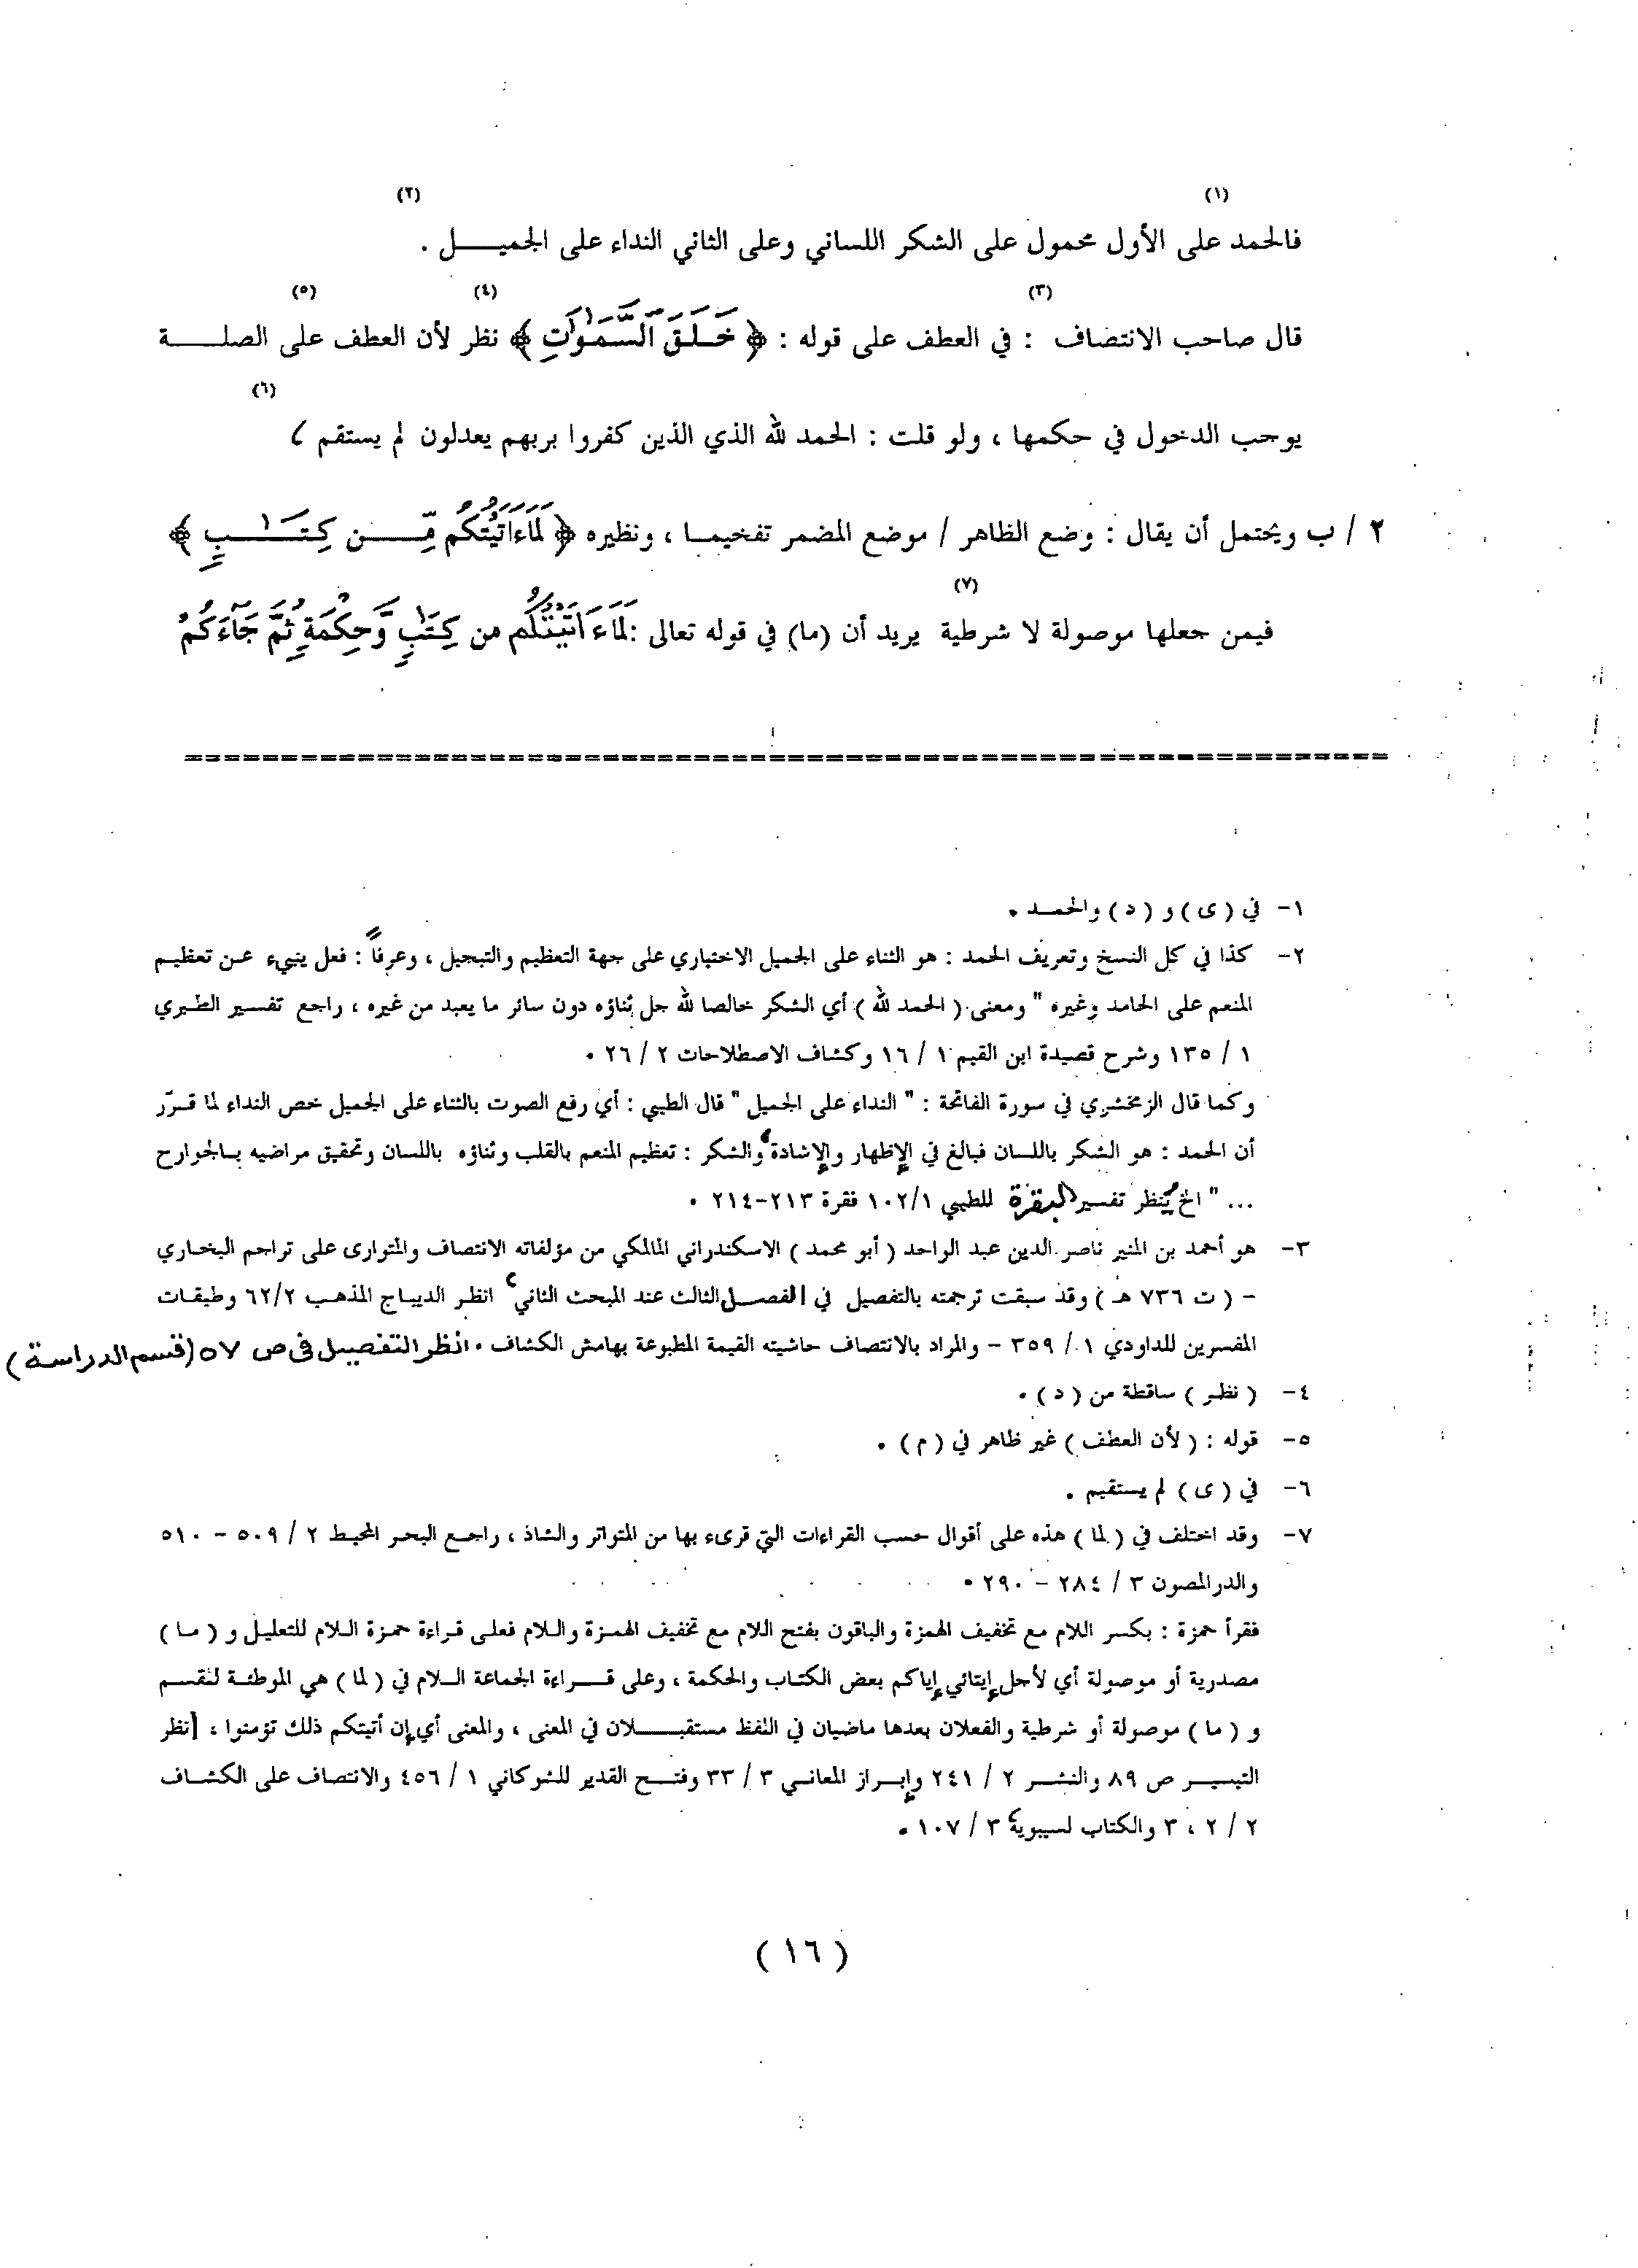 (١) (٢)
فالحمد على الأول محمول على الشكر اللساني وعلى الثاني النداء على الجميـــل .
(٣) (٤) (٥)
قال صاحب الانتصاف : في العطف على قوله : ﴿ خَلَقَ السَّمَٰوَٰتِ ﴾ نظر لأن العطف على الصلـــة
(٦)
يوجب الدخول في حكمها ، ولو قلت : الحمد لله الذي الذين كفروا بربهم يعدلون لم يستقم ،
٢ / ب ويحتمل أن يقال : وضع الظاهر / موضع المضمر تفخيمـا ، ونظيره ﴿ لَمَاءَاتَيْتُكُم مِّــن كِتَـٰــبٍ ﴾
(٧)
فيمن جعلها موصولة لا شرطية يريد أن (ما) في قوله تعالى : لَمَاءَاتَيْتُكُم من كِتَٰبٍ وَّحِكْمَةٍ ثُمَّ جَآءَكُمْ
١- في ( ى ) و ( د ) والحمـد .
٢- كذا في كل النسخ وتعريف الحمد : هو الثناء على الجميل الاختياري على جهة التعظيم والتبجيل ، وعرفاً : فعل ينبيء عـن تعظيـم
المنعم على الحامد وغيره " ومعنى ( الحمد لله ) أي الشكر خالصا لله جل ثناؤه دون سائر ما يعبد من غيره ، راجع تفسير الطبري
١ / ١٣٥ وشرح قصيدة ابن القيم ١ / ١٦ وكشاف الاصطلاحات ٢ / ٢٦ .
وكما قال الزمخشري في سورة الفاتحة : " النداء على الجميل " قال الطيبي : أي رفع الصوت بالثناء على الجميل خص النداء لما قـرّر
أن الحمد : هو الشكر باللسان فبالغ في الإظهار والإشادة والشكر : تعظيم المنعم بالقلب وثناؤه باللسان وتحقيق مراضيه بـالجوارح
... " الخ يُنظر تفسير البقرة للطيبي ١٠٢/١ فقرة ٢١٣-٢١٤ .
٣- هو أحمد بن المنير ناصر الدين عبد الواحد ( أبو محمد ) الاسكندراني المالكي من مؤلفاته الانتصاف والمتوارى على تراجم البخـاري
- ( ت ٧٣٦ هـ ) وقد سبقت ترجمته بالتفصيل في الفصـل الثالث عند المبحث الثاني ، انظر الديباج المذهب ٦٢/٢ وطبقات
المفسرين للداودي ١ / ٣٥٩ - والمراد بالانتصاف حاشيته القيمة المطبوعة بهامش الكشاف . انظر التفصيل في ص ٥٧ (قسم الدراسة)
٤- ( نظر ) ساقطة من ( د ) .
٥- قوله : ( لأن العطف ) غير ظاهر في ( م ) .
٦- في ( ى ) لم يستقيم .
٧- وقد اختلف في ( لما ) هذه على أقوال حسب القراءات التي قرىء بها من المتواتر والشاذ ، راجـع البحر المحيـط ٢ / ٥٠٩ - ٥١٠
والدر المصون ٣ / ٢٨٤ - ٢٩٠ .
فقرأ حمزة : بكسر اللام مع تخفيف الهمزة والباقون بفتح اللام مع تخفيف الهمـزة والـلام فعلـى قـراءة حمـزة الـلام للتعليـل و ( مـا )
مصدرية أو موصولة أي لأجل إيتائي إياكم بعض الكتاب والحكمة ، وعلى قـــراءة الجماعة الـلام في ( لما ) هي الموطئـة لنقسم
و ( ما ) موصولة أو شرطية والفعلان بعدها ماضيان في اللفظ مستقبـــلان في المعنى ، والمعنى أي إن أتيتكم ذلك تؤمنوا ، انظر
التيسيـر ص ٨٩ والنشـر ٢ / ٢٤١ وإبـراز المعانـي ٣ / ٣٣ وفتـح القدير للشوكاني ١ / ٤٥٦ والانتصاف على الكشـاف
٢ / ٢ ، ٣ والكتاب لسيبوية ٣ / ١٠٧ .
( ١٦ )